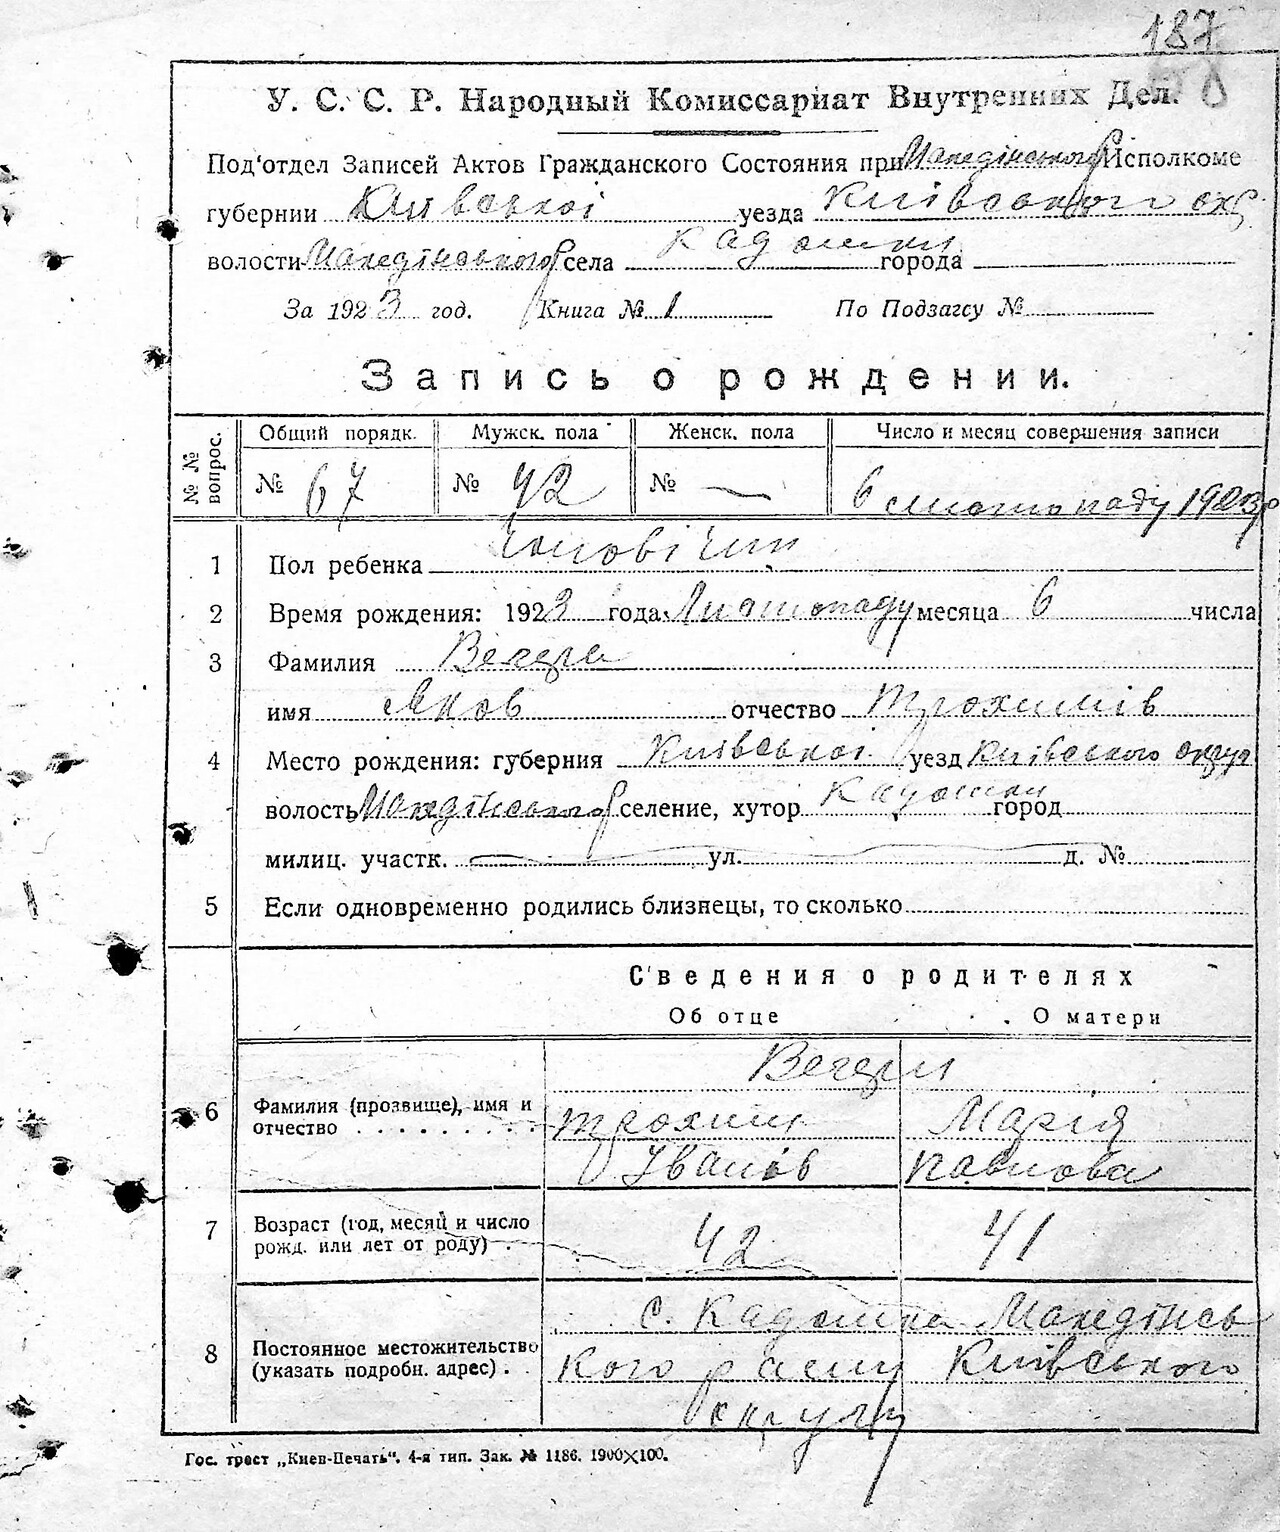 187
У. С. С. Р. Народный Комиссариат Внутренних Дел.
Под'отдел Записей Актов Гражданского Состояния при Македінського Исполкоме
губернии Київської уезда Київського окр.
волости Македінського села Кадомки города
За 1923 год. Книга № 1 По Подзагсу №
Запись о рождении.
№ № вопрос. Общий порядк. Мужск. пола Женск. пола Число и месяц совершения записи
№ 67 № 42 № — 6 листопаду 1923 р
1 Пол ребенка чоловічий
2 Время рождения: 1923 года Листопаду месяца 6 числа
3 Фамилия Вечеря
имя Яков отчество Трохимів
4 Место рождения: губерния Київської уезд Київського округа
волость Македінського селение, хутор Кадомки город
милиц. участк. ул. д. №
5 Если одновременно родились близнецы, то сколько
Сведения о родителях
Об отце О матери
Вечеря
6 Фамилия (прозвище), имя и отчество Трохим Марія
Іванов Павлова
7 Возраст (год, месяц и число рожд. или лет от роду) 42 41
8 Постоянное местожительство (указать подробн. адрес) с. Кадомка Македінсь
кого раену Київського
округу
Гос. трест „Киев-Печать“. 4-я тип. Зак. № 1186. 1900×100.